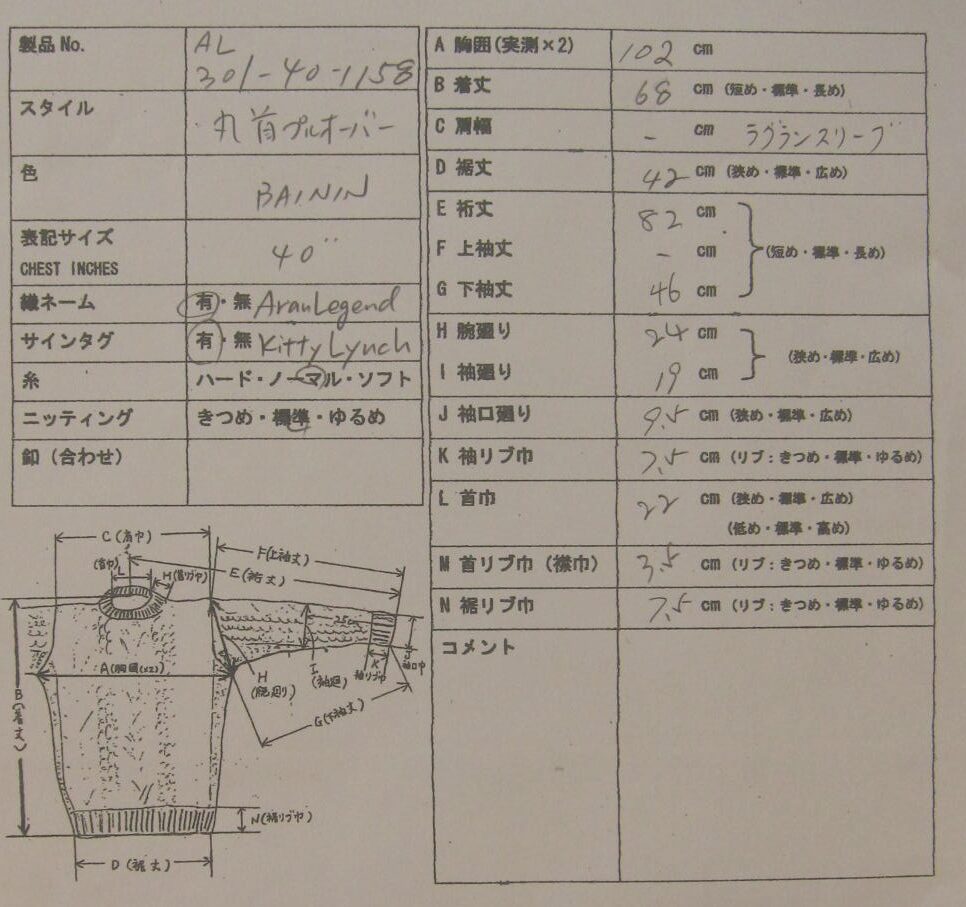 製品 No.
AL
301-40-1158
スタイル
丸首プルオーバー
色
BAINİN
表記サイズ
CHEST INCHES
40"
織ネーム
有・無 Aran Legend
サインタグ
有・無 Kitty Lynch
糸
ハード・ノーマル・ソフト
ニッティング
きつめ・標準・ゆるめ
釦（合わせ）
A 胸囲(実測×2) 102 cm
B 着丈 68 cm (短め・標準・長め)
C 肩幅 - cm ラグランスリーブ
D 裾丈 42 cm (狭め・標準・広め)
E 裄丈 82 cm
F 上袖丈 - cm (短め・標準・長め)
G 下袖丈 46 cm
H 腕廻り 24 cm
(狭め・標準・広め)
I 袖廻り 19 cm
J 袖口廻り 9.5 cm (狭め・標準・広め)
K 袖リブ巾 7.5 cm (リブ：きつめ・標準・ゆるめ)
L 首巾 22 cm (狭め・標準・広め)
(低め・標準・高め)
M 首リブ巾（襟巾） 3.5 cm (リブ：きつめ・標準・ゆるめ)
N 裾リブ巾 7.5 cm (リブ：きつめ・標準・ゆるめ)
コメント
C(肩巾)
F(上袖丈)
E(裄丈)
(首巾)
L
M(首リブ巾)
A(胸囲(×2))
B(着丈)
H
(腕廻り)
I
(袖廻)
K
袖リブ巾
J
袖口巾
G(下袖丈)
N(裾リブ巾)
D(裾丈)